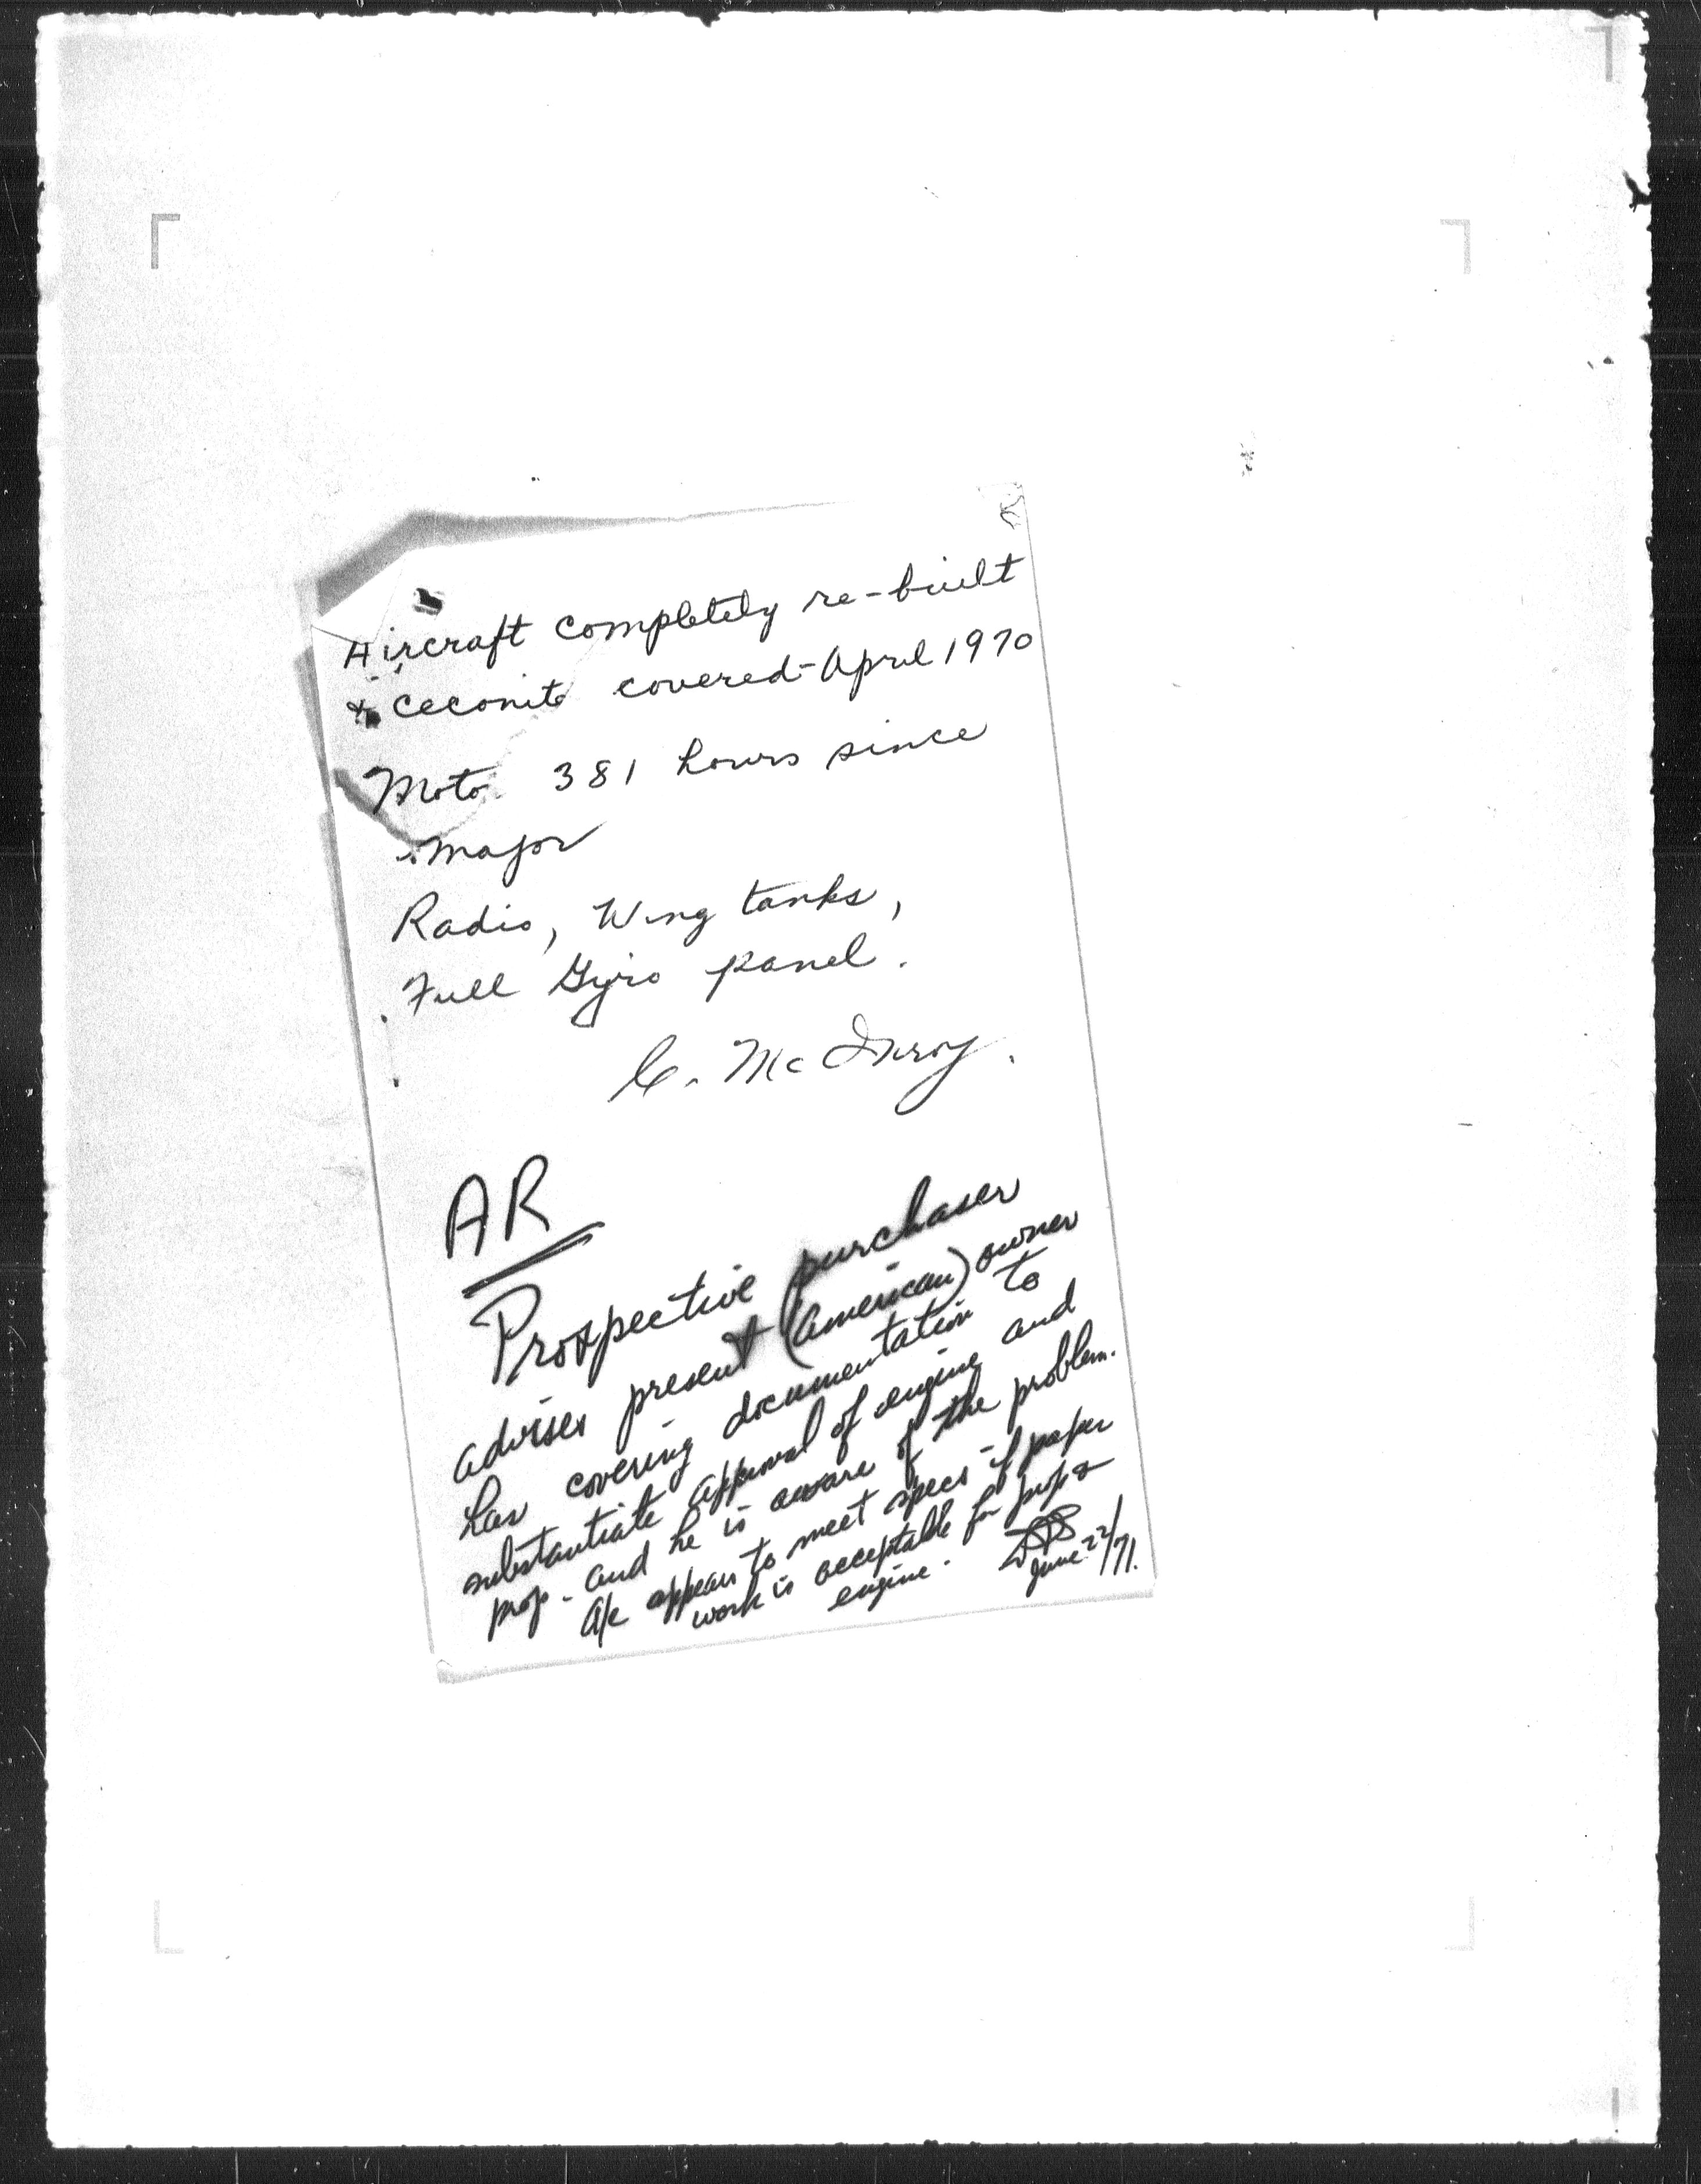 Aircraft completely re-built
& Ceconite covered - April 1970
Motor 381 hours since
major
Radio, Wing tanks,
Full Gyro panel.
C. McInroy.
AR
Prospective purchaser
advises present (American) owner
has covering documentation to
substantiate approval of engine and
prop. and he is aware of the problem.
A/c appears to meet specs if paper
work is acceptable for prop &
engine.
June 22/71.